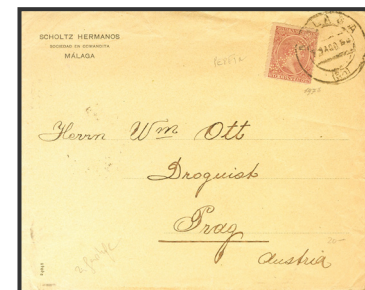 SCHOLTZ HERMANOS
SOCIEDAD EN COMANDITA
MÁLAGA
MALAGA
Herrn Wm Ott
Droguist
Prag
Austria